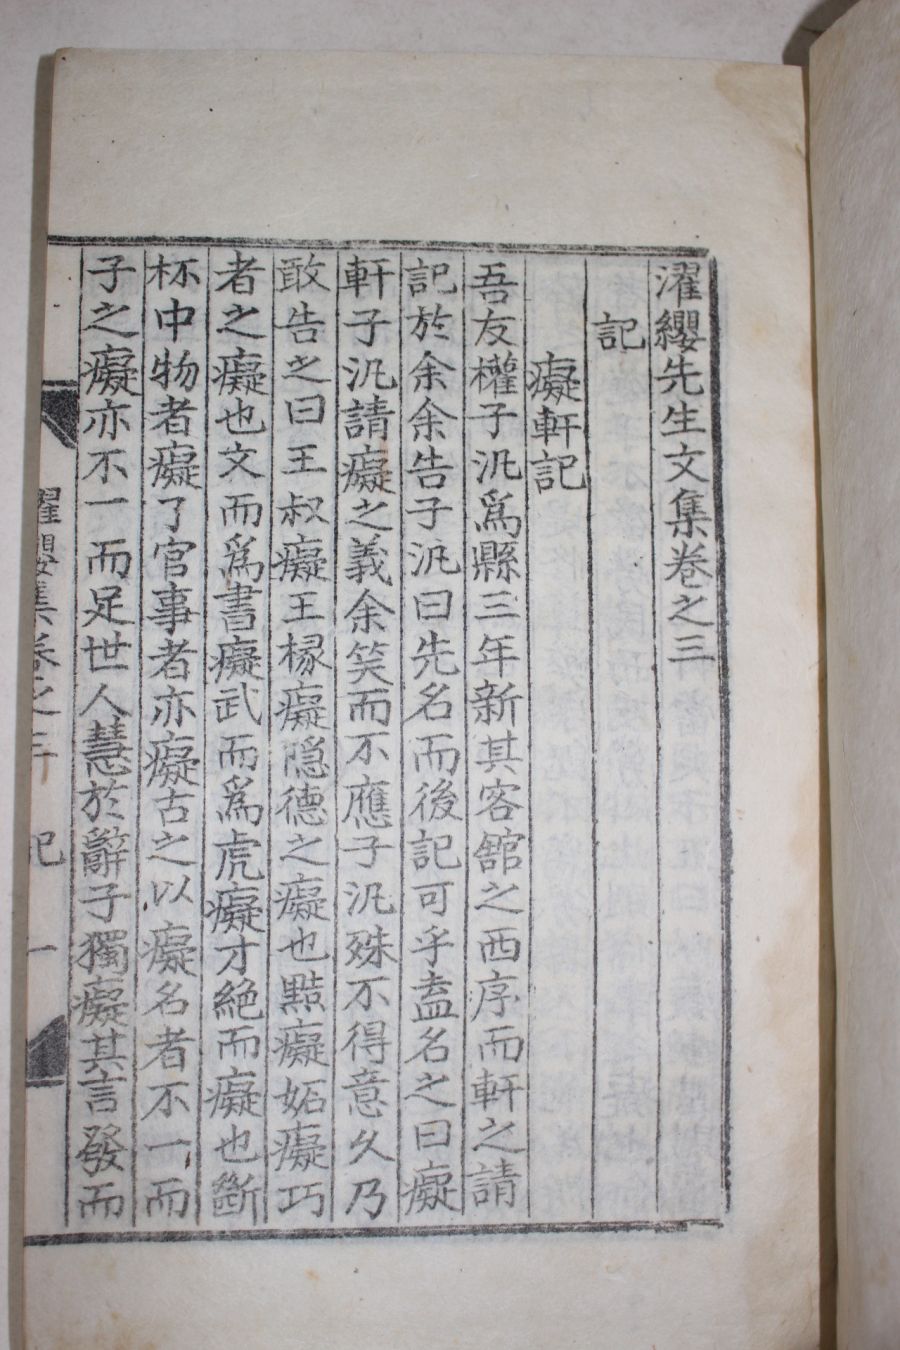 濯纓先生文集卷之三
記
癡軒記
吾友權子汎爲縣三年新其客舘之西序而軒之請
記於余余告子汎曰先名而後記可乎盍名之曰癡
軒子汎請癡之義余笑而不應子汎殊不得意久乃
敢告之曰王叔癡王椽癡隱德之癡也黠癡妬癡巧
者之癡也文而爲書癡武而爲虎癡才絶而癡也斷
杯中物者癡了官事者亦癡古之以癡名者不一而
子之癡亦不一而足世人慧於辭子獨癡其言發而
濯纓集卷之三 記 一